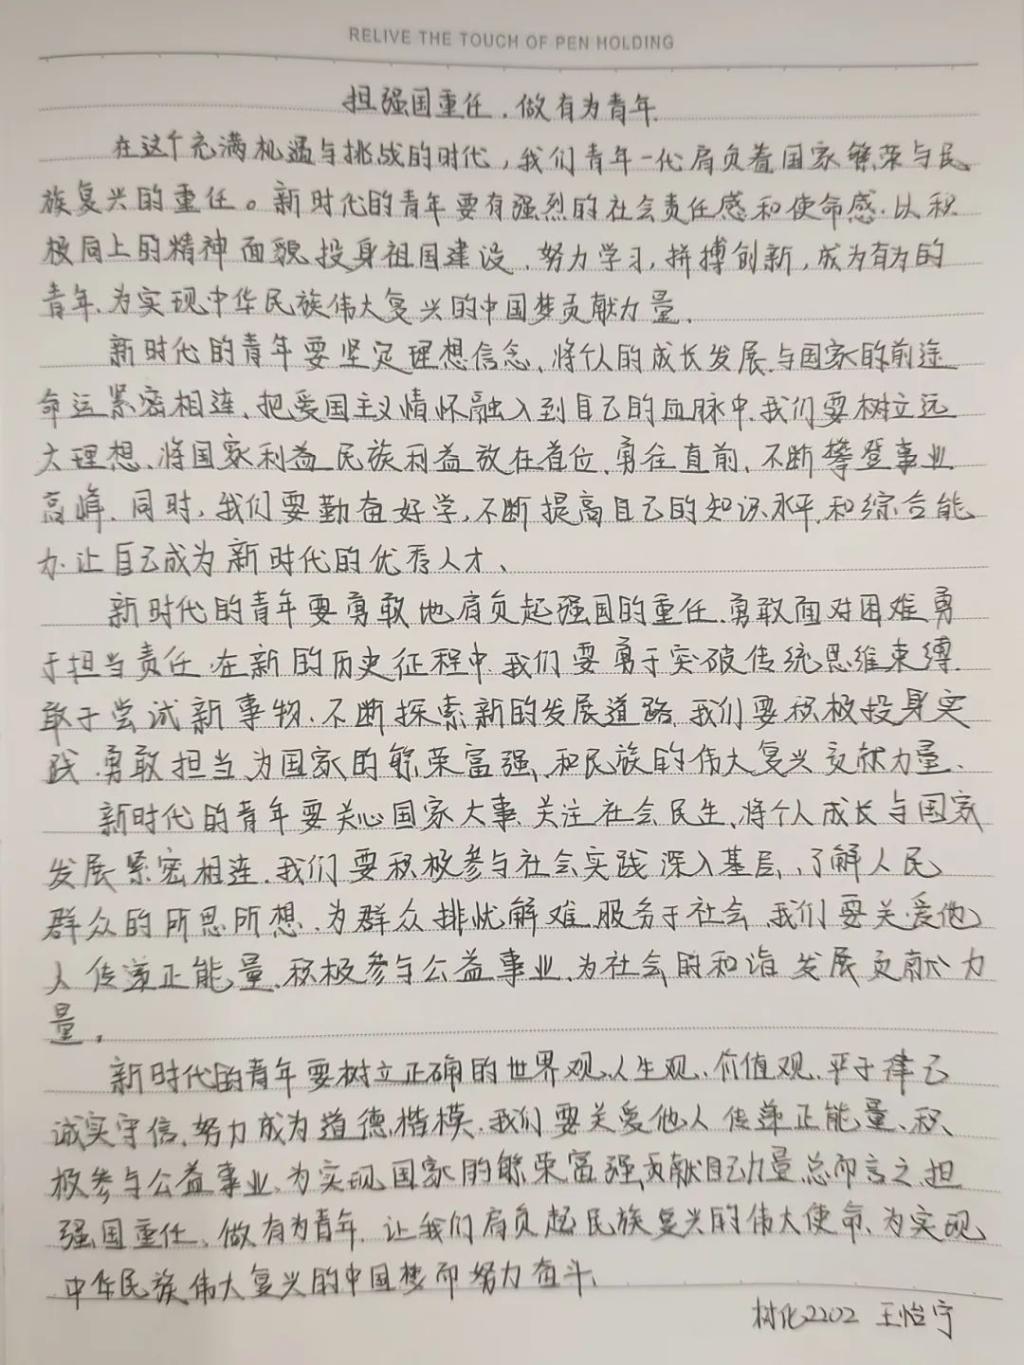 RELIVE THE TOUCH OF PEN HOLDING
担强国重任，做有为青年
在这个充满机遇与挑战的时代，我们青年一代肩负着国家繁荣与民
族复兴的重任。新时代的青年要有强烈的社会责任感和使命感，以积
极向上的精神面貌，投身祖国建设，努力学习，拼搏创新，成为有为的
青年、为实现中华民族伟大复兴的中国梦贡献力量、
新时代的青年要坚定理想信念，将个人的成长发展与国家的前途
命运紧密相连，把爱国主义情怀融入到自己的血脉中，我们要树立远
大理想、将国家利益民族利益放在首位、勇往直前、不断攀登事业
高峰，同时，我们要勤奋好学，不断提高自己的知识水平和综合能
力，让自己成为新时代的优秀人才、
新时代的青年要勇敢地肩负起强国的重任，勇敢面对困难勇
于担当责任，在新的历史征程中，我们要勇于突破传统思维束缚，
敢于尝试新事物、不断探索新的发展道路，我们要积极投身实
践，勇敢担当，为国家的繁荣富强，和民族的伟大复兴贡献力量、
新时代的青年要关心国家大事，关注社会民生，将个人成长与国家
发展紧密相连，我们要积极参与社会实践，深入基层，了解人民
群众的所思所想，为群众排忧解难，服务于社会，我们要关爱他
人传递正能量，积极参与公益事业，为社会的和谐发展贡献力
量。
新时代的青年要树立正确的世界观、人生观、价值观，严于律己
诚实守信，努力成为道德楷模，我们要关爱他人传递正能量、积
极参与公益事业，为实现国家的繁荣富强贡献自己力量，总而言之，担
强国重任、做有为青年，让我们肩负起民族复兴的伟大使命、为实现
中华民族伟大复兴的中国梦而努力奋斗、
材化2202 王怡宁